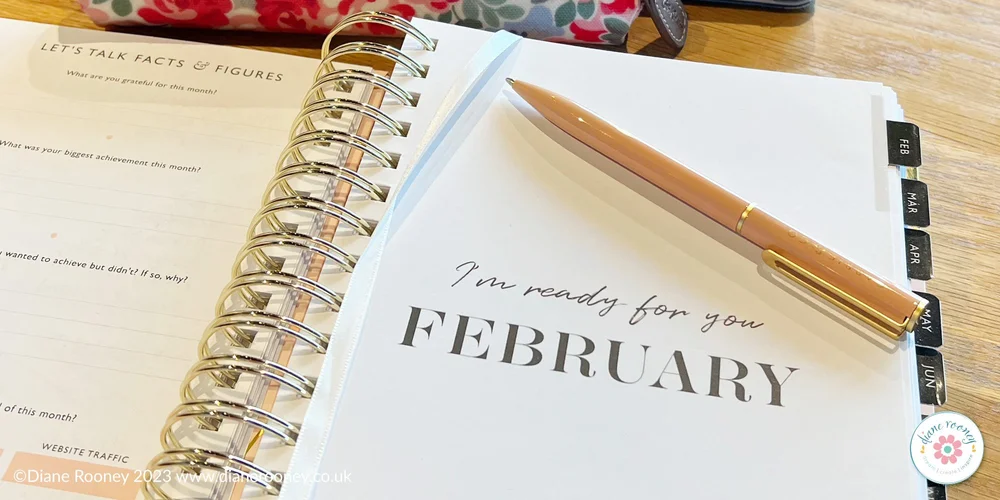 LET'S TALK FACTS & FIGURES
What are you grateful for this month?
What was your biggest achievement this month?
wanted to achieve but didn't? If so, why?
of this month?
WEBSITE TRAFFIC
I'm ready for you
FEBRUARY
FEB
MAR
APR
MAY
JUN
diane rooney
©Diane Rooney 2023 www.dianerooney.co.uk